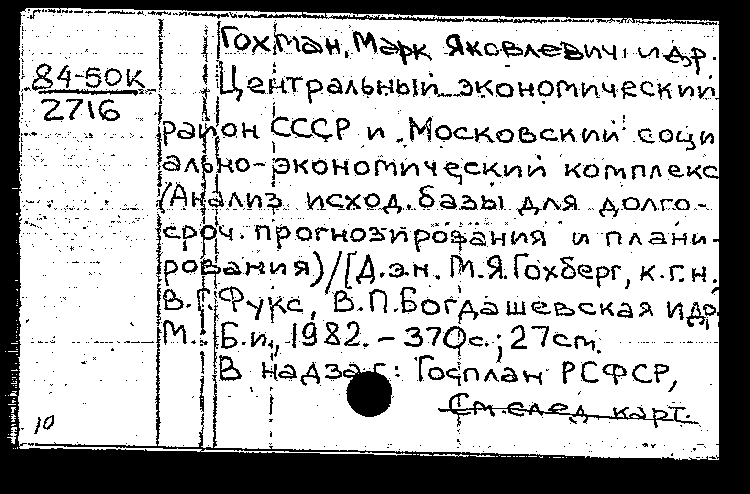 Гохман, Марк Яковлевич и др.
84-50К
2716
Центральный экономический
район СССР и Московский соци
ально-экономический комплекс
(Анализ исход. базы для долго-
сроч. прогнозирования и плани-
рования)/[Д.э.н. М.Я.Гохберг, к.г.н.
В.Г.Фукс, В.П.Богдашевская и др.
М.: Б.и., 1982. - 370с.; 27см.
В надзаг: Госплан РСФСР,
См. след. карт.
10